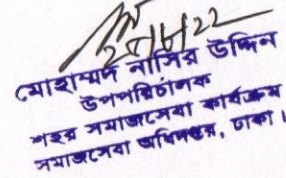 মোহাম্মদ নাসির উদ্দিন
উপপরিচালক
শহর সমাজসেবা কার্যক্রম
সমাজসেবা অধিদপ্তর, ঢাকা।